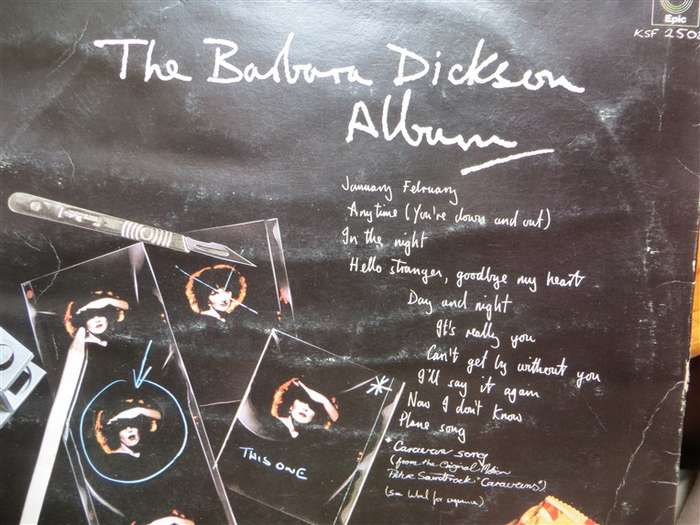 Epic
KSF 2508
The Barbara Dickson
Album
January February
Anytime (You're down and out)
In the night
Hello stranger, goodbye my heart
Day and night
It's really you
Can't get by without you
I'll say it again
Now I don't know
Plane song
* Caravan song
(from the Original Motion
Picture Soundtrack "Caravans")
(see label for sequence)
THIS ONE